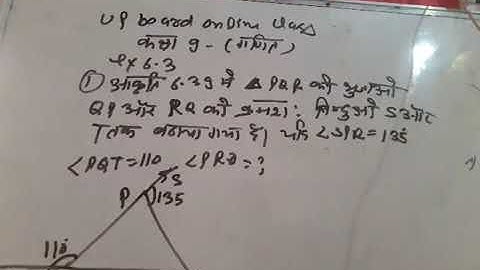 UP board onDine class
कक्षा 9 - (गणित)
Ex 6.3
① आकृति 6.39 में △PQR की भुजाओं
QP और RQ को क्रमशः बिन्दुओं S और
T तक बढ़ाया गया है। यदि ∠SPR = 135
∠PQT = 110 ∠PRQ = ?
S
P 135
110